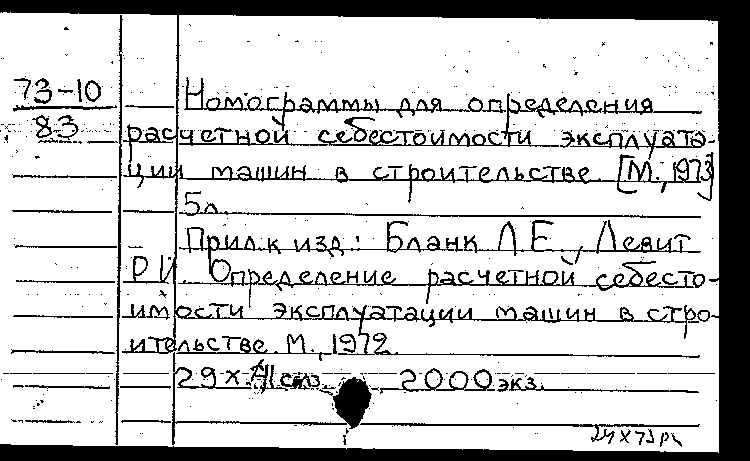 73-10
83
Номограммы для определения
расчетной себестоимости эксплуата-
ции машин в строительстве. [М., 1973]
5л.
Прил.к изд.: Бланк Л.Е., Левит
Р.И. Определение расчетной себесто-
имости эксплуатации машин в стро-
ительстве. М., 1972.
29 х 41 см. 2000 экз.